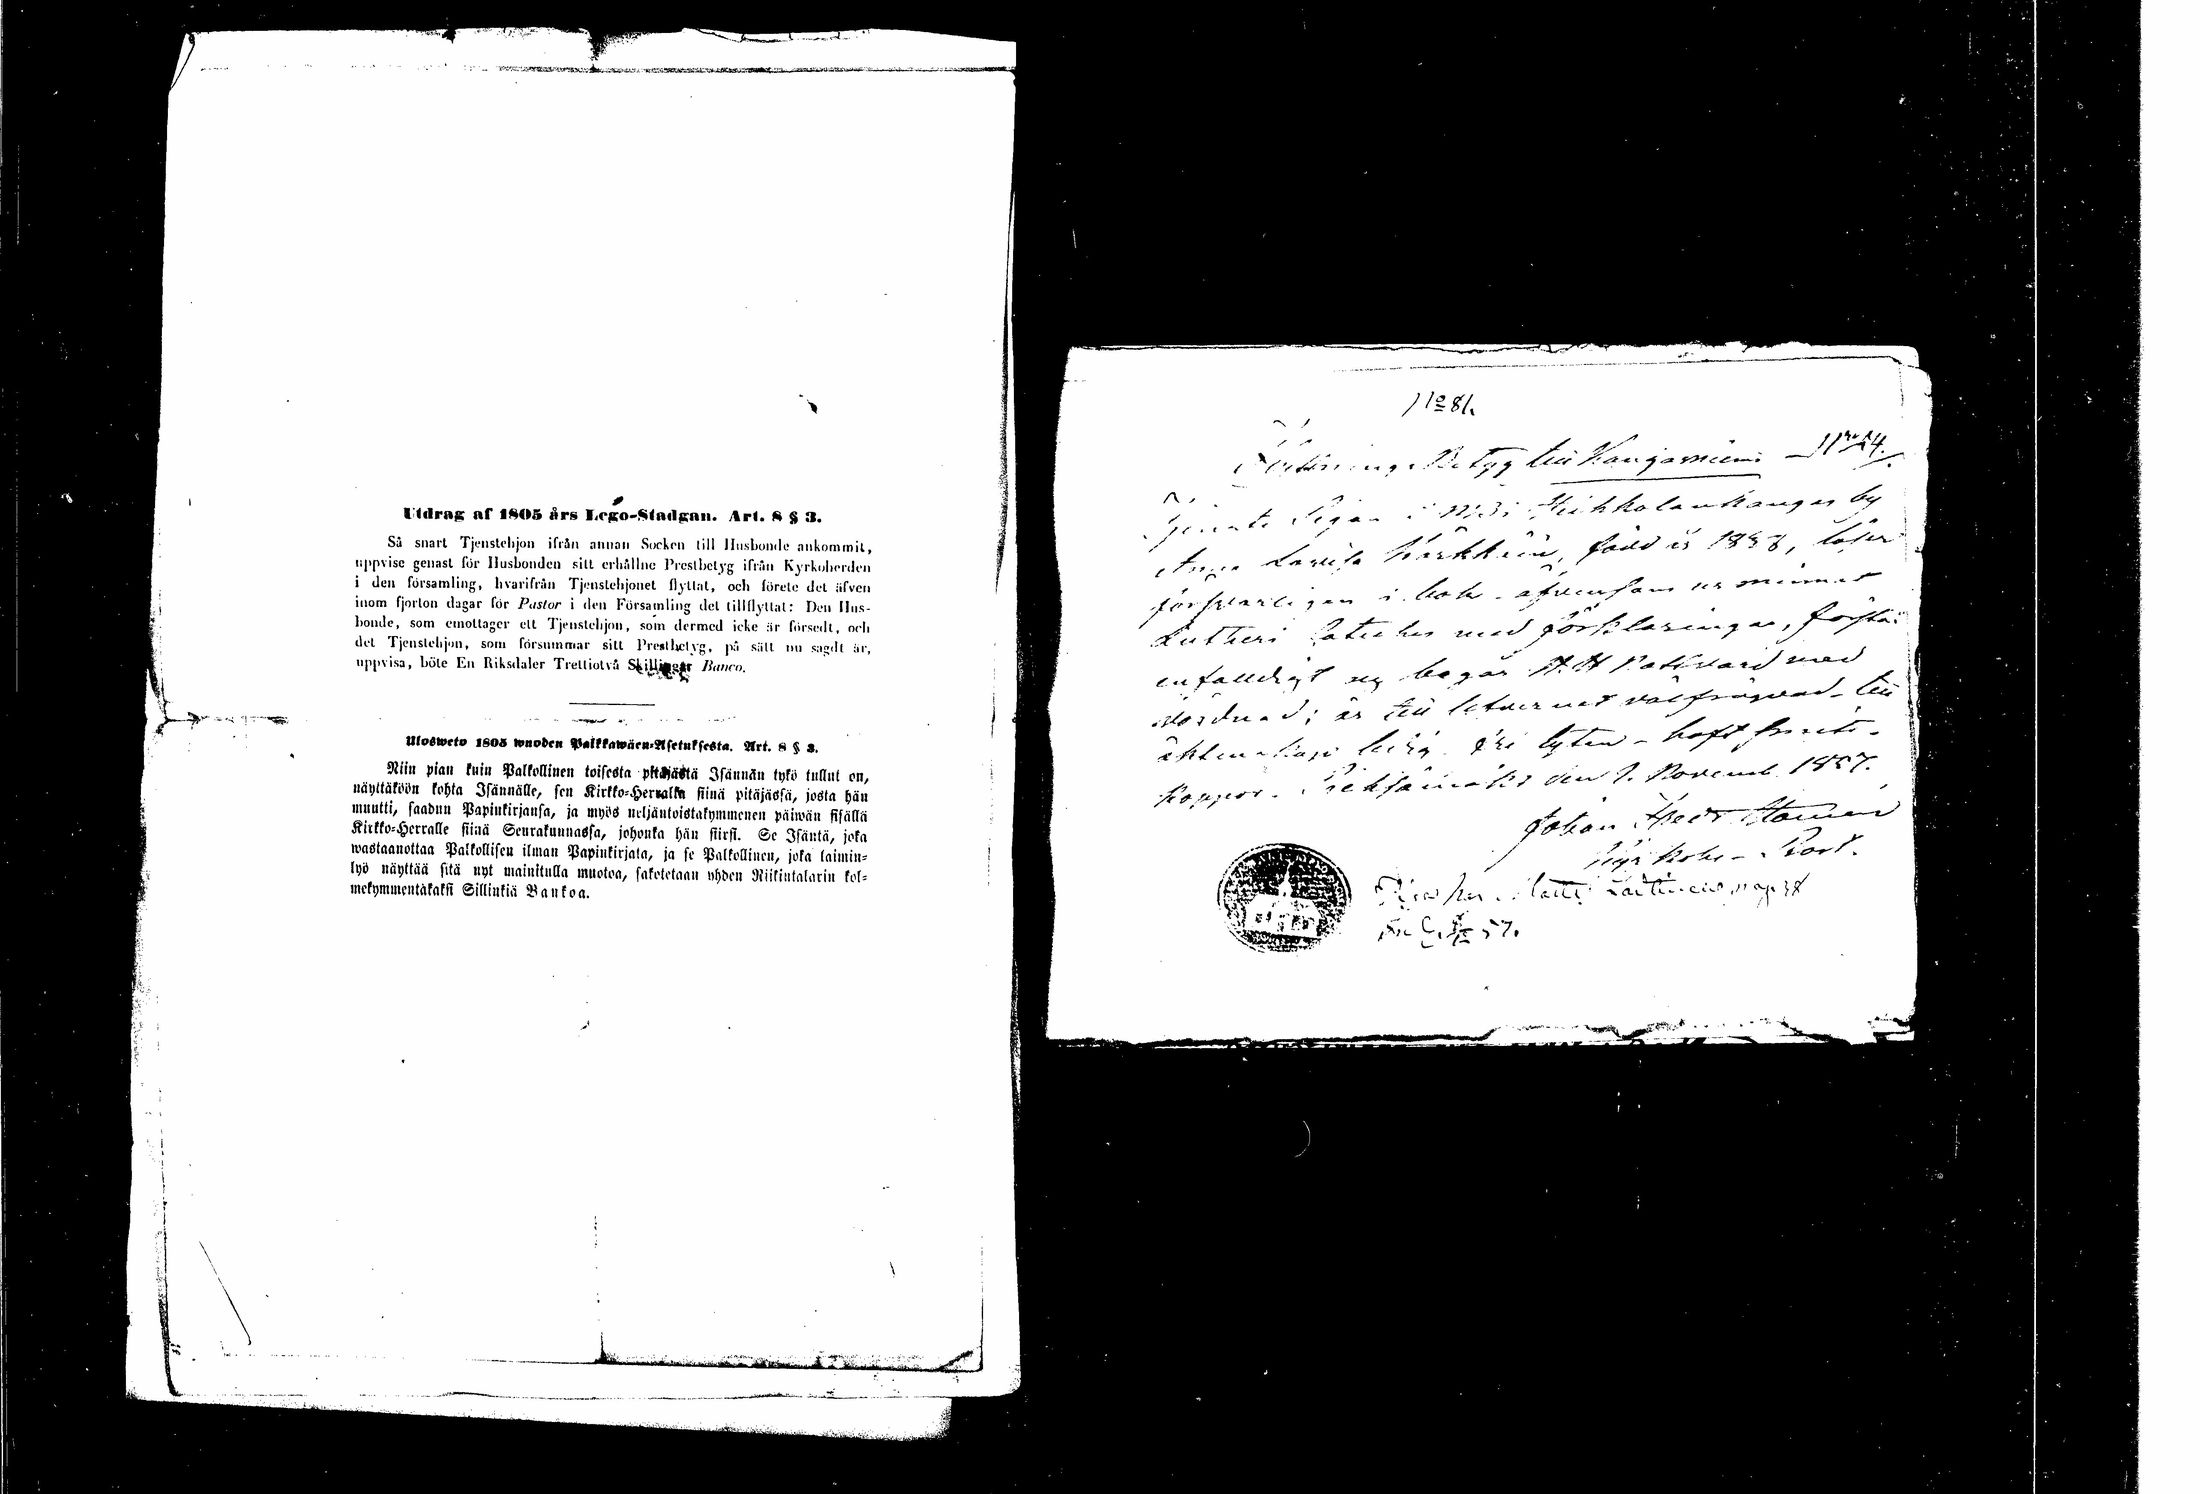 Utdrag af 1805 års Lego-Stadgan. Art. 8 § 3.
Så snart Tjenstehjon ifrån annan Socken till Husbonde ankommit,
uppvise genast för Husbonden sitt erhållne Prestbetyg ifrån Kyrkoherden
i den församling, hvarifrån Tjenstehjonet flyttat, och förete det äfven
inom fjorton dagar för Pastor i den Församling det tillflyttat: Den Hus-
bonde, som emottager ett Tjenstehjon, som dermed icke är försedt, och
det Tjenstehjon, som försummar sitt Prestbetyg, på sätt nu sagdt är,
uppvisa, böte En Riksdaler Trettiotvå Skillingar Banco.
Ulosweto 1805 wuoden Palkkawäen-Asetuksesta. Art. 8 § 3.
Niin pian kuin Palkollinen toisesta pitäjästä Isännän tykö tullut on,
näyttäköön kohta Isännälle, sen Kirkko-Herralta siinä pitäjässä, josta hän
muutti, saadun Papinkirjansa, ja myös neljäntoistakymmenen päiwän sisällä
Kirkko-Herralle siinä Seurakunnassa, johonka hän siirsi. Se Isäntä, joka
wastaanottaa Palkollisen ilman Papinkirjata, ja se Palkollinen, joka laimin-
lyö näyttää sitä nyt mainitulla muotoa, sakotetaan yhden Riikintalarin kol-
mekymmentäkaksi Sillinkiä Bankoa.
No 81.
Betyg till Kangasniemi
Pigan i by
Anna Lovisa född år 1838, läser
försvarligen i bok, äfvensom ur minnet
Lutheri Cateches med förklaringar, förstår
enfaldigt begår H. H. Nattvard med
vördnad; är till lefvernet välfrägdad, till
äktenskap ledig, fri lyten, haft
koppor. Pieksämäki den 1. Novemb. 1857.
Johan